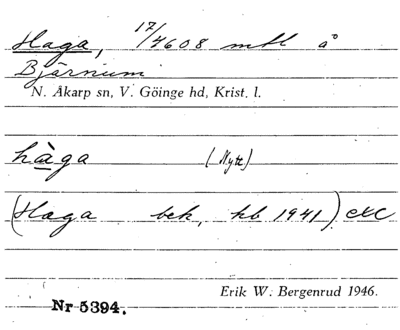 Haga, 17/4608 mtl å
Bjärnum
N. Åkarp sn, V. Göinge hd, Krist. l.
hàga (Nytt)
(Haga bek, kb 1941)
Erik W. Bergenrud 1946.
Nr 5394.